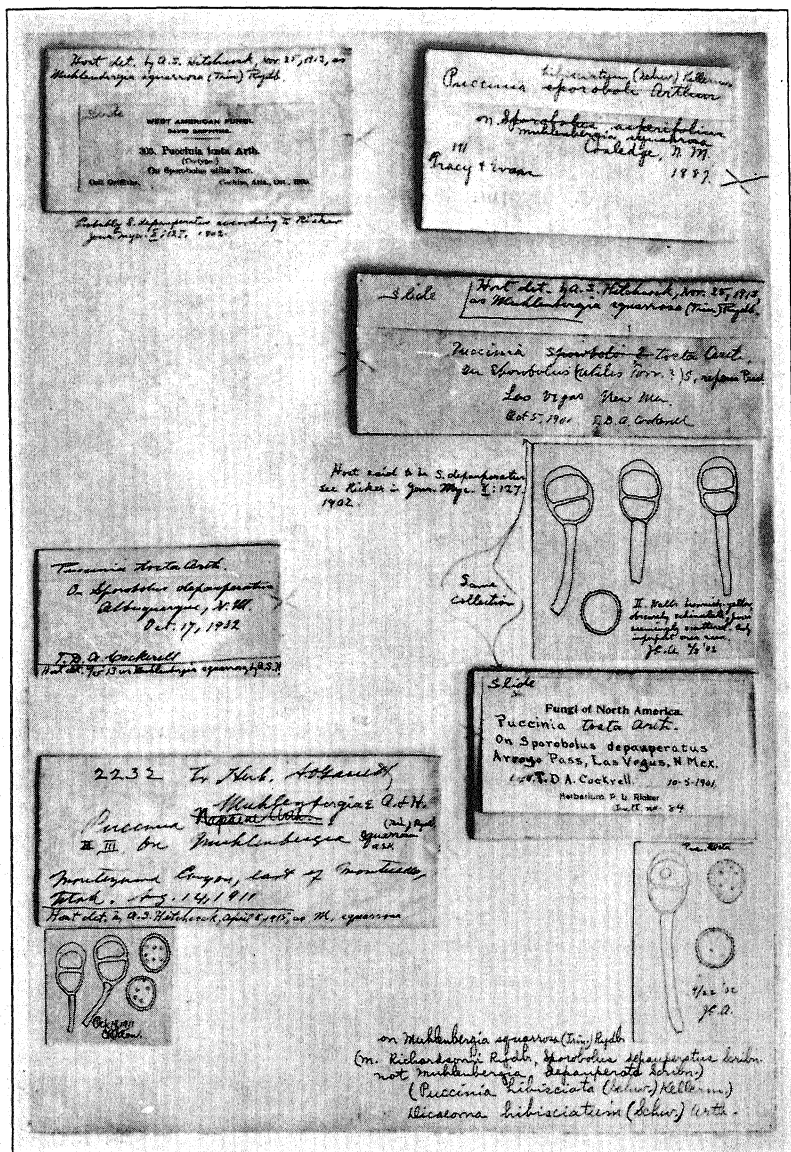 Host det. by A. S. Hitchcock, Nov. 25, 1913, as
Muhlenbergia squarrosa (Trin.) Rydb.
Slide
WEST AMERICAN FUNGI.
DAVID GRIFFITHS.
305. Puccinia tosta Arth.
(Cotype.)
On Sporobolus utilis Torr.
Coll. Griffiths. Cochise, Ariz., Oct., 1900.
Probably S. depauperatus according to Ricker
Jour. Myc. 127. 1902.
hibisciatum (Schw.) Kellerm.
Puccinia sporoboli Arthur
on Sporobolus asperifolius
Muhlenbergia squarrosa
Coolidge, N. M.
III
Tracy & Evans 1887.
Slide
Host det. by A. S. Hitchcock, Nov. 25, 1913,
as Muhlenbergia squarrosa (Trin.) Rydb.
Puccinia tosta Arth.
on Sporobolus (utilis Torr. ?)
Las Vegas New Mex.
Oct 5, 1901 T. D. A. Cockerell
Host said to be S. depauperatus
see Ricker in Jour. Myc. : 127.
1902.
Same
collection
II. Walls brownish-yellow,
7/8 '02
Puccinia tosta Arth.
On Sporobolus depauperatus
Albuquerque, N. M.
Oct. 17, 1902
T. D. A. Cockerell
Host det. as Muhlenbergia squarrosa by A. S. H.
Slide
Fungi of North America.
Puccinia tosta Arth.
On Sporobolus depauperatus
Arroyo Pass, Las Vegas, N Mex.
T. D A. Cockrell. 10-5-1901
Herbarium P. L. Ricker
no. 84
2232 Herb.
Muhlenbergiae A. & H.
Puccinia
II III on Muhlenbergia squarrosa
(Trin.) Rydb.
A.S.H.
Canyon, east of
Utah. Aug. 14, 1911
Host det. by A. S. Hitchcock, April 8, 1915, as M. squarrosa
Puc. tosta
4/22 '02
J.C.A.
on Muhlenbergia squarrosa (Trin.) Rydb.
(M. Richardsonii Rydb., Sporobolus depauperatus Scribn.
not Muhlenbergia depauperata Scribn.)
(Puccinia hibisciata (Schw.) Kellerm.)
Dicaeoma hibisciatum (Schw.) Arth.